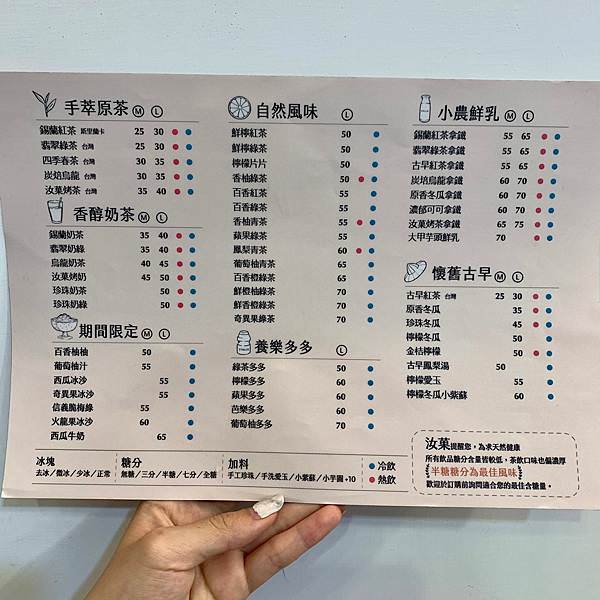 手萃原茶 M L
錫蘭紅茶 斯里蘭卡 25 30
翡翠綠茶 台灣 25 30
四季春茶 台灣 30 35
炭焙烏龍 台灣 30 35
汝菓烤茶 台灣 35 40
香醇奶茶 M L
錫蘭奶茶 35 40
翡翠奶綠 35 40
烏龍奶茶 40 45
汝菓烤奶 45 50
珍珠奶茶 50
珍珠奶綠 50
期間限定 M L
百香柚柚 50
葡萄柚汁 55
西瓜冰沙 55
奇異果冰沙 55
信義脆梅綠 55
火龍果冰沙 60
西瓜牛奶 65
自然風味 L
鮮檸紅茶 50
鮮檸綠茶 50
檸檬片片 50
香柚綠茶 50
百香紅茶 55
百香綠茶 55
香柚青茶 55
蘋果綠茶 55
鳳梨青茶 60
葡萄柚青茶 65
百香橙綠茶 65
鮮橙柚綠茶 70
鮮香橙綠茶 70
奇異果綠茶 70
養樂多多 L
綠茶多多 60
檸檬多多 60
蘋果多多 60
芭樂多多 60
葡萄柚多多 70
小農鮮乳 M L
錫蘭紅茶拿鐵 55 65
翡翠綠茶拿鐵 55 65
古早紅茶拿鐵 55 65
炭焙烏龍拿鐵 60 70
原香冬瓜拿鐵 60 70
濃郁可可拿鐵 60 70
汝菓烤茶拿鐵 65 75
大甲芋頭鮮乳 70
懷舊古早 M L
古早紅茶 台灣 25 30
原香冬瓜 35
珍珠冬瓜 45
檸檬冬瓜 50
金桔檸檬 50
古早鳳梨湯 50
檸檬愛玉 55
檸檬冬瓜小紫蘇 60
冰塊
去冰/微冰/少冰/正常
糖分
無糖/三分/半糖/七分/全糖
加料
手工珍珠/手洗愛玉/小紫蘇/小芋圓+10
冷飲
熱飲
汝菓提醒您，為求天然健康
所有飲品糖分含量皆較低，茶飲口味也偏濃厚
半糖糖分為最佳風味
歡迎於訂購前詢問適合您的最佳含糖量。